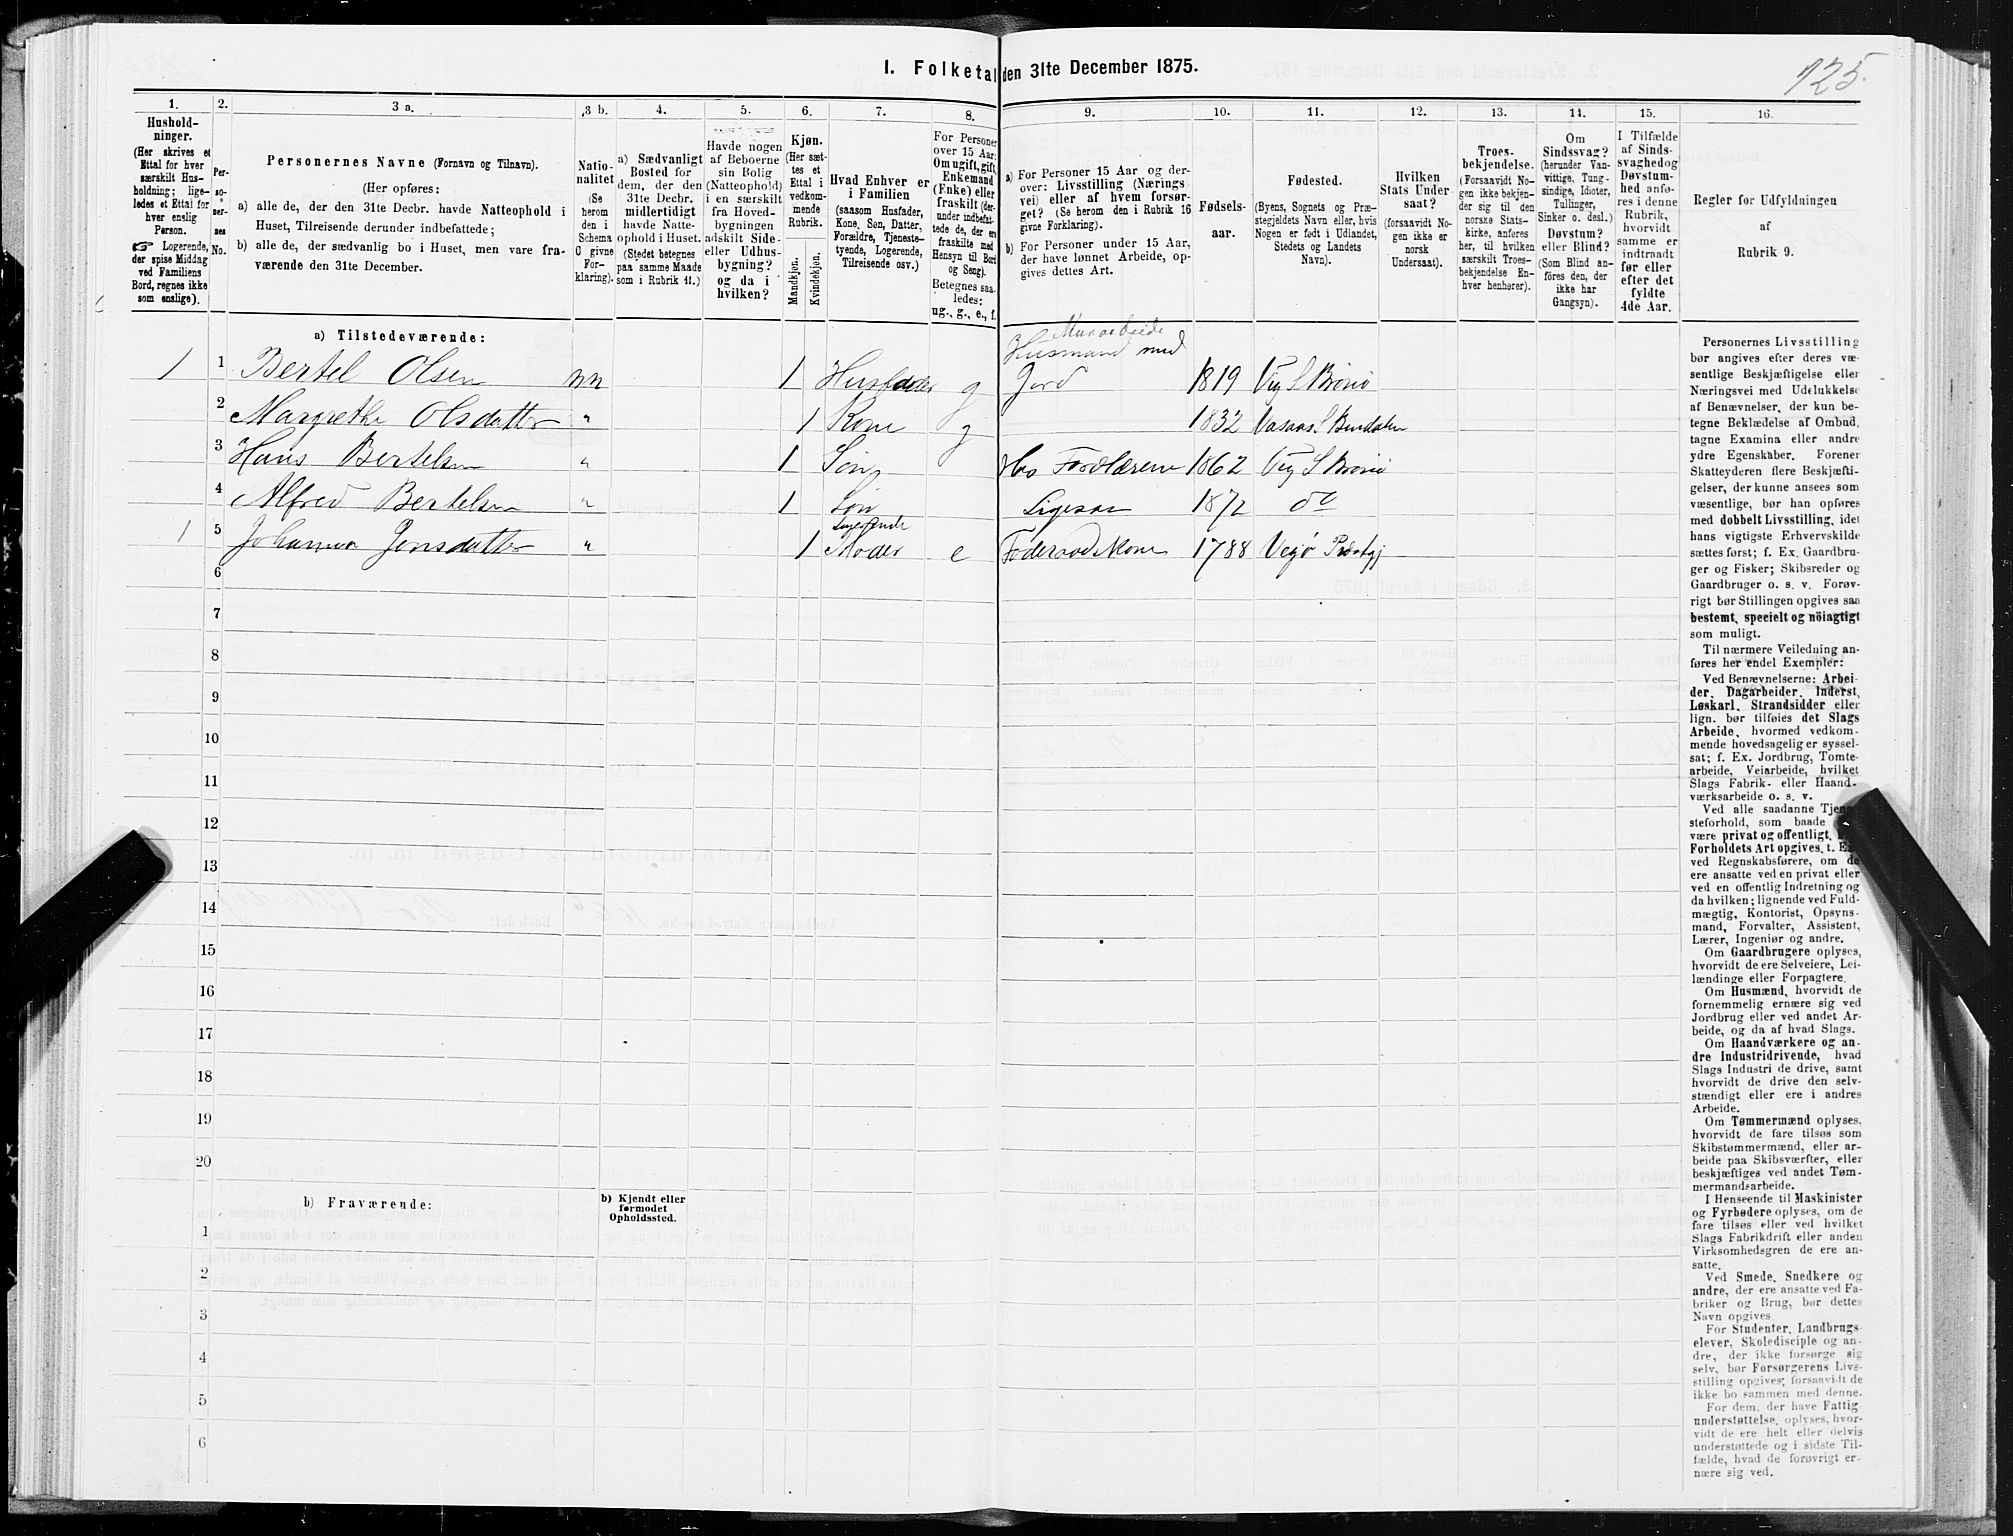 I. Folketal den 31te December 1875.
125.
1.
2.
3 a.
3 b.
4.
5.
6.
7.
8.
9.
10.
11.
12.
13.
14.
15.
16.
Hushold-
ninger.
(Her skrives et
Ettal for hver
særskilt Hus-
holdning; lige-
ledes et Ettal for
hver enslig
Person.
☞ Logerende,
der spise Middag
ved Familiens
Bord, regnes ikke
som enslige).
Per-
so-
ner-
nes
No.
Personernes Navne (Fornavn og Tilnavn).
(Her opføres:
a) alle de, der den 31te Decbr. havde Natteophold i
Huset, Tilreisende derunder indbefattede;
b) alle de, der sædvanlig bo i Huset, men vare fra-
værende den 31te December.
Natio-
nalitet
(Se
herom
den i
Schema
6 givne
For-
klaring).
a) Sædvanligt
Bosted for
dem, der den
31te Decbr.
midlertidigt
havde Natte-
ophold i Huset.
(Stedet betegnes
paa samme Maade
som i Rubrik 11.)
Havde nogen
af Beboerne
sin Bolig
(Natteophold)
i en særskilt
fra Hoved-
bygningen
adskilt Side-
eller Udhus-
bygning?
og da i
hvilken?
Kjøn.
(Her sæt-
tes et
Ettal i
vedkom-
mende
Rubrik.
Mandkjøn.
Kvindekjøn.
Hvad Enhver er
i Familien
(saasom Husfader,
Kone, Søn, Datter,
Forældre, Tjeneste-
tyende, Logerende,
Tilreisende osv.)
For Personer
over 15 Aar:
Om ugift, gift,
Enkemand
(Enke) eller
fraskilt (der-
under indbefat-
tede de, der ere
fraskilte med
Hensyn til Bord
og Seng).
Betegnes saa-
ledes:
ug., g., e., f.
a) For Personer 15 Aar og der-
over: Livsstilling (Nærings
vei) eller af hvem forsør-
get? (Se herom den i Rubrik 16
givne Forklaring).
b) For Personer under 15 Aar,
der have lønnet Arbeide, op-
gives dettes Art.
Fødsels-
aar.
Fødested.
(Byens, Sognets og Præ-
stegjeldets Navn eller, hvis
Nogen er født i Udlandet,
Stedets og Landets
Navn).
Hvilken
Stats Under-
saat?
(forsaavidt No-
gen ikke er
norsk
Undersaat).
Troes-
bekjendelse.
(Forsaavidt No-
gen ikke bekjen-
der sig til den
norske Stats-
kirke, anføres
her, til hvilken
særskilt Troes-
bekjendelse En-
hver henhører).
Om
Sindssvag?
(herunder Van-
vittige, Tung-
sindige, Idioter,
Tullinger,
Sinker o. desl.)
Døvstum?
eller Blind?
(Som Blind an-
føres den, der
ikke har
Gangsyn).
I Tilfælde
af Sinds-
svaghed og
Døvstum-
hed anfø-
res i denne
Rubrik,
hvorvidt
samme er
indtraadt
før eller
efter det
fyldte
4de Aar.
Regler for Udfyldningen
af
Rubrik 9.
a) Tilstedeværende:
1 1 Bertel Olsen nn 1 Husfader g Husmand med Jord 1819 Vig S Brønø
2 Margrethe Olsdatter " 1 Kone g 1832 Vasaas S Bindalen
3 Hans Bertelsen " 1 Søn 1862 Vig S Brønø
4 Alfred Bertelsen " 1 Søn Ligesaa 1872 do
1 5 Johanna Jensdatter " 1 Logerende Moder e Føderaadskone 1788 Vegø Præstgj
6
7
8
9
10
11
12
13
14
15
16
17
18
19
20
b) Fraværende:
b) Kjendt eller
formodet
Opholdssted.
1
2
3
4
5
6
Personernes Livsstilling
bør angives efter deres væ-
sentlige Beskjæftigelse eller
Næringsvei med Udelukkelse
af Benævnelser, der kun be-
tegne Beklædelse af Ombud,
tagne Examina eller andre
ydre Egenskaber. Forener
Skatteyderen flere Beskjæfti-
gelser, der kunne ansees som
væsentlige, bør han opføres
med dobbelt Livsstilling, idet
hans vigtigste Erhvervskilde
sættes først; f. Ex. Gaardbru-
ger og Fisker; Skibsreder og
Gaardbruger o. s. v. Forøv-
rigt bør Stillingen opgives saa
bestemt, specielt og nöiagtigt
som muligt.
Til nærmere Veiledning an-
føres her endel Exempler:
Ved Benævnelserne: Arbei-
der, Dagarbeider, Inderst,
Løskarl, Strandsidder eller
lign. bør tilføies det Slags
Arbeide, hvormed vedkom-
mende hovedsagelig er syssel-
sat; f. Ex. Jordbrug, Tomte-
arbeide, Veiarbeide, hvilket
Slags Fabrik- eller Haand-
værksarbeide o. s. v.
Ved alle saadanne Tjene-
steforhold, som baade
være privat og offentligt,
Forholdets Art opgives, t. Ex.
ved Regnskabsførere, om de
ere ansatte ved en privat eller
ved en offentlig Indretning og
da hvilken; lignende ved Fuld-
mægtig, Kontorist, Opsyns-
mand, Forvalter, Assistent,
Lærer, Ingeniør og andre.
Om Gaardbrugere oplyses,
hvorvidt de ere Selveiere, Lei-
lændinge eller Forpagtere.
Om Husmænd, hvorvidt de
fornemmelig ernære sig ved
Jordbrug eller ved andet Ar-
beide, og da af hvad Slags.
Om Haandværkere og an-
dre Industridrivende, hvad
Slags Industri de drive, samt
hvorvidt de drive den selv-
stændigt eller ere i andres
Arbeide.
Om Tømmermænd oplyses,
hvorvidt de fare tilsøs som
Skibstømmermænd, eller ar-
beide paa Skibsværfter, eller
beskjæftiges ved andet Tøm-
mermandsarbeide.
I Henseende til Maskinister
og Fyrbødere oplyses, om de
fare tilsøs eller ved hvilket
Slags Fabrikdrift eller anden
Virksomhedsgren de ere an-
satte.
Ved Smede, Snedkere og
andre, der ere ansatte ved Fa-
briker og Brug, bør dettes
Navn opgives.
For Studenter, Landbrugs-
elever, Skoledisciple og an-
dre, der ikke forsørge sig
selv, bør Forsørgerens Livs-
stilling opgives, forsaavidt de
ikke bo sammen med denne.
For dem, der have Fattig-
understøttelse, oplyses, hvor-
vidt de ere helt eller delvis
understøttede og i sidste Til-
fælde, hvad de forøvrigt er-
nære sig ved.